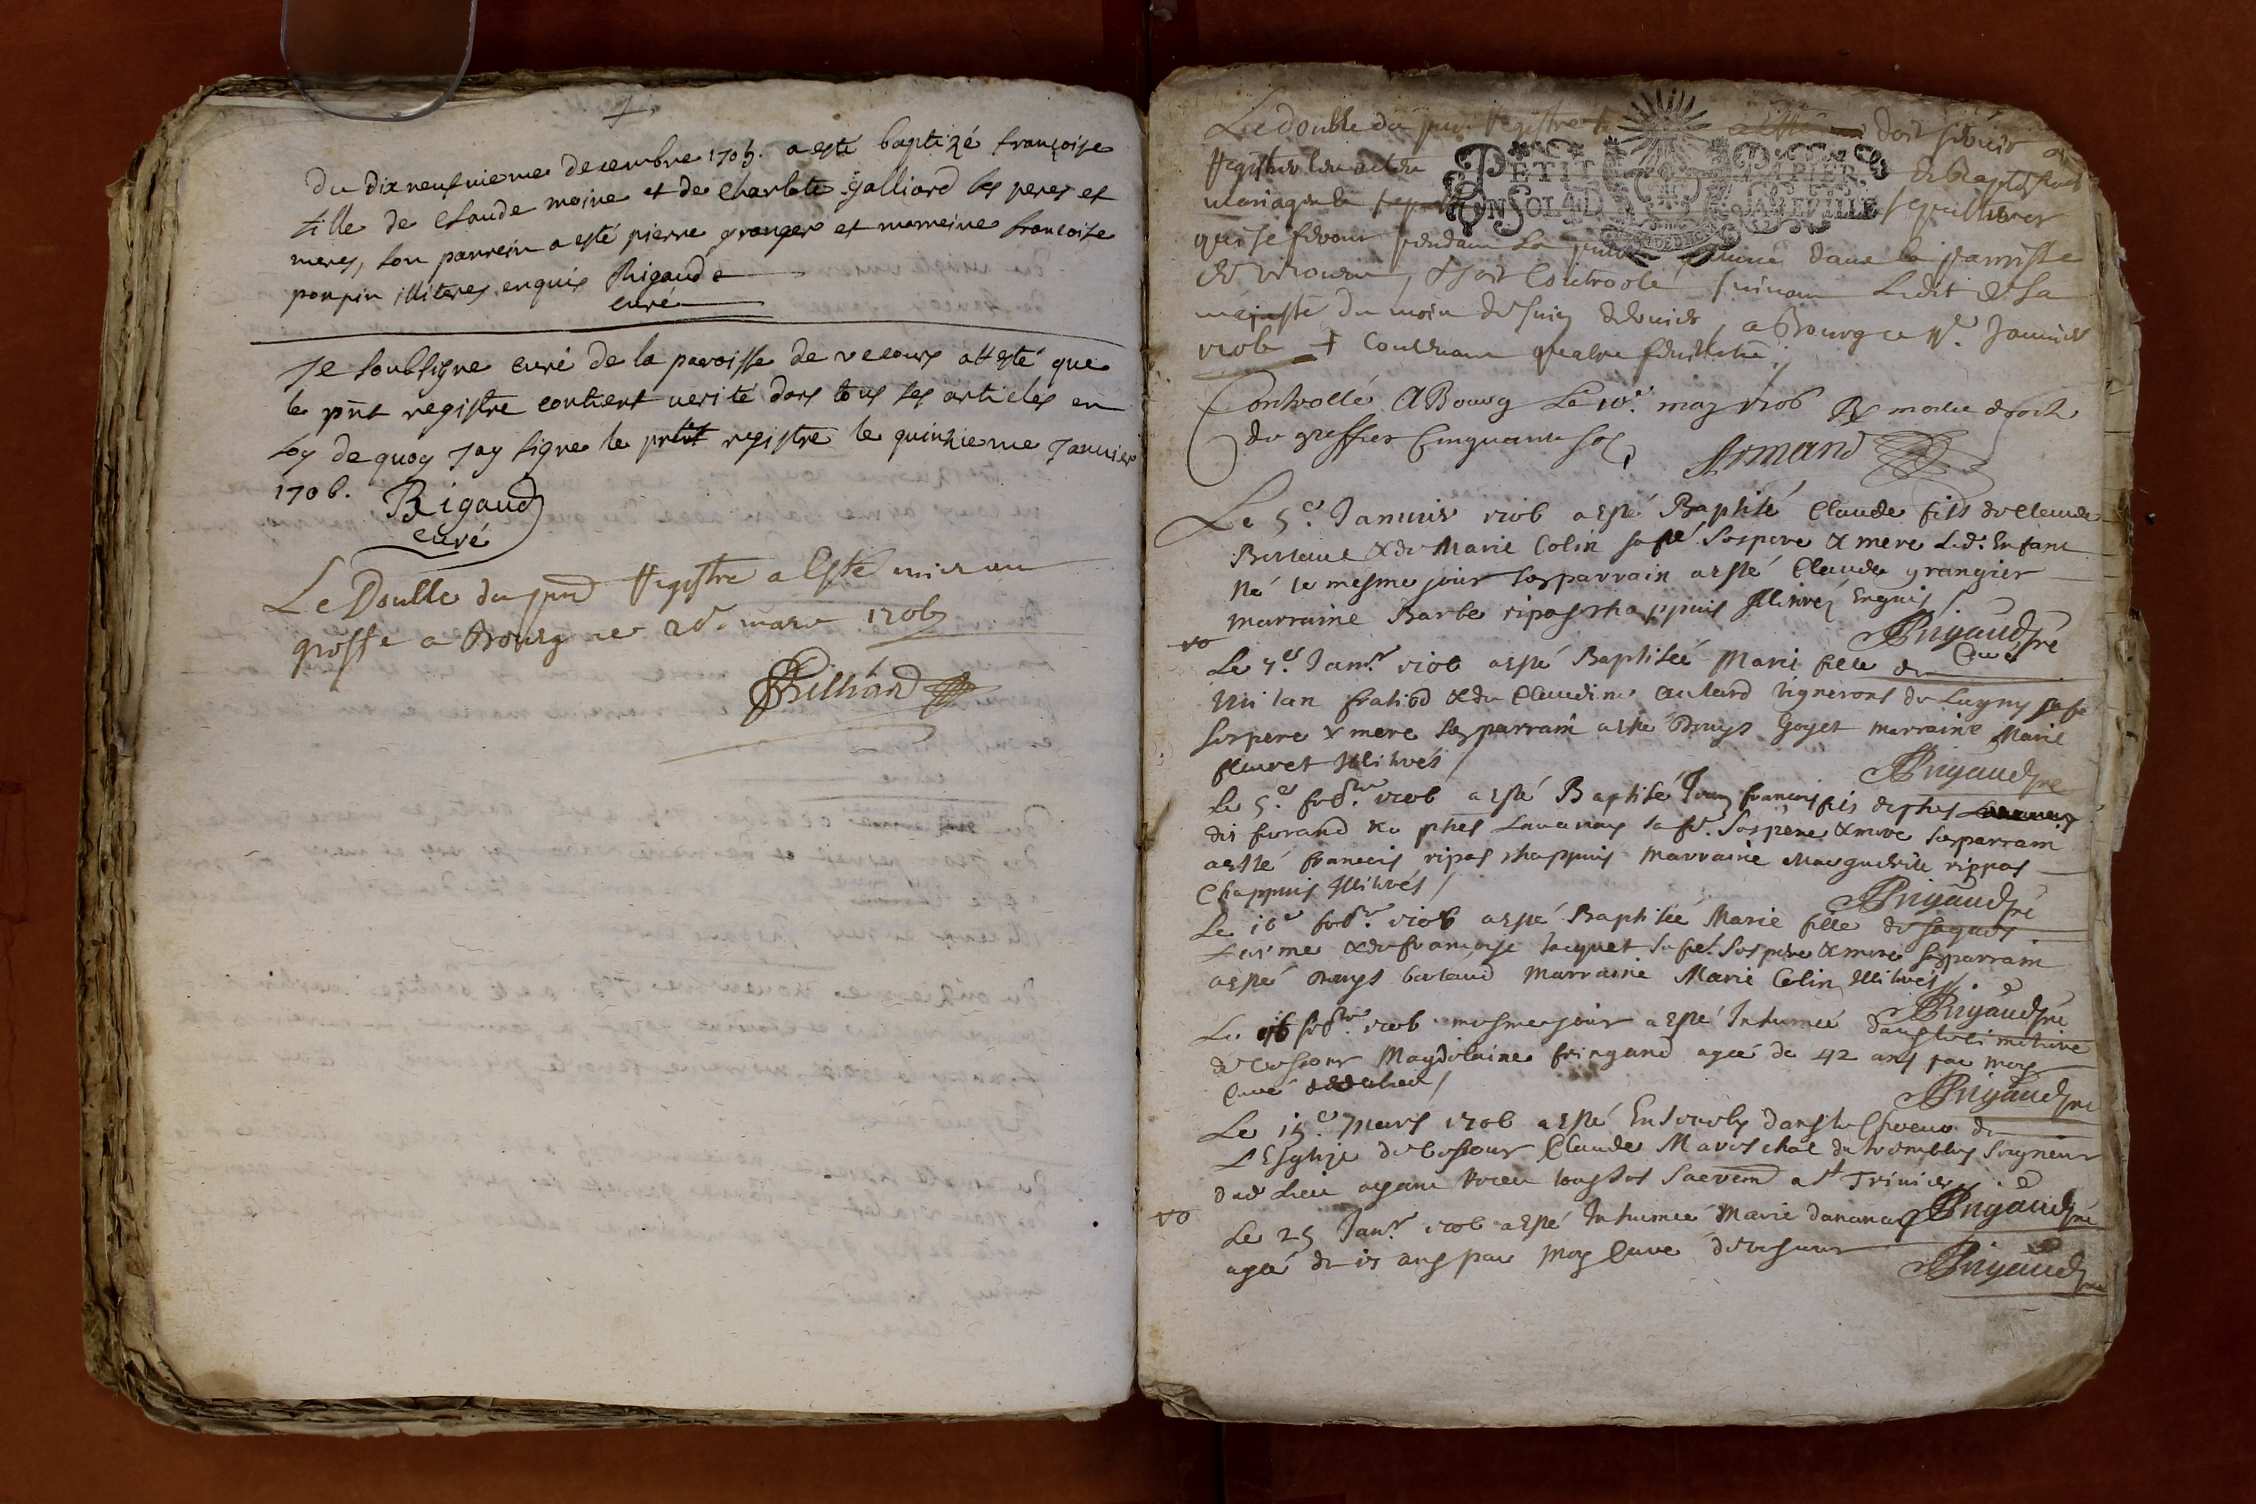 Du dix neufvieme decembre 1705. a esté baptizé françoise
fille de Claude moine et de Charlote galliard ses peres et
meres, son parrein a esté pierre granger et marreine francoise
ponpin illiteres enquis Rigaud
curé
Je soubsigne curé de la paroisse de vecours atteste que
le pnt registre contient verité dans tous ses articles en
foy de quoy Jay signe le pnt registre le quinzieme Janvier
1706. Rigaud
curé
Le Double du pnt Registre a Esté mis au
greffe a Bourg ce mars 1706
Le double du pnt Registre doit servir a
Registrer les actes de Baptesmes
PETIT PAPIER
mariages & sepultures
UN SOL 4 D LA FEUILLE
qui se feront pendant la pnte année dans la parroisse
de , & soit Controole suivant Ledit de Sa
majesté du mois de Juin dernier, a Bourg ce Janvier
1706 Contenant quatre feuillets
Controllé A Bourg Le 10e. may 1706 moitie droit
du greffier Cinquante sols
Armand
Le 5e. Janvier 1706 a esté Baptisé Claude fils de Claude
& de Marie Colin sa fe. Ses pere & mere Led. Enfant
Né le mesme jour Son parrain a esté Claude grangier
marraine Barbe ripos chappuis Illitrés Enquis
Rigaud pre
Curé
Le 7e. Janr. 1706 a esté Baptiseé Marie fille de
& de Claudine Vignerons de Lugny sa fe
Ses pere & mere Son parrain a esté Goyet marraine Marie
fleuret Illitrés
Rigaud pre
Le 5e. febr. 1706 a esté Baptisé Jean francois fils de
sa fe. Ses pere & mere Son parrain
a esté francois ripos chappuis marraine Margueritte rippos
Chappuis Illitrés
Rigaud pre
Le 16e febr. 1706 a esté Baptiseé Marie fille de
& de françoise Jacquet sa fe. Ses pere & mere Son parrain
a esté marraine Marie Colin Illitrés
Rigaud pre
Le 16 febr. 1706 mesme jour a esté Inhumeé dans le Cimetiere
de Magdelaine fringand ageé de 42 ans par moy
Curé dud lieu
Rigaud pre
Le 15e. Mars 1706 a esté Ensevely dans le Choeur de
L'Eglize de Claude Mareschal du trembley Seigneur
dud Lieu ayant receu tous ses Sacrem a St Trivier
Rigaud pre
Le 25 Janr. 1706 a esté Inhumeé Marie
ageé de 15 ans par moy Curé de
Rigaud pre